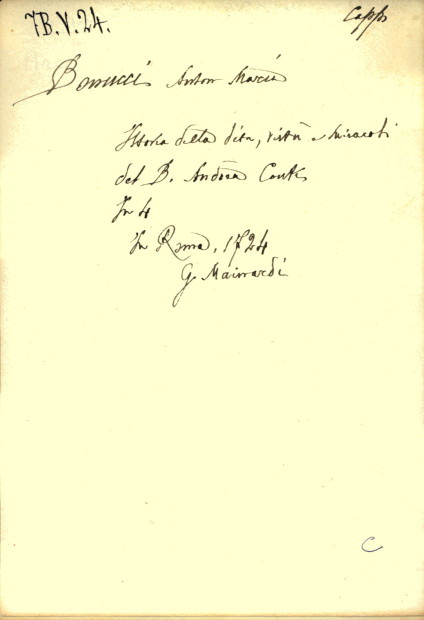 7B.V.24.
Capps
Bonucci Anton Maria
Istoria della Vita, virtù e miracoli
del B. Andrea Conti
In 4
In Roma, 1724
G. Mainardi
C